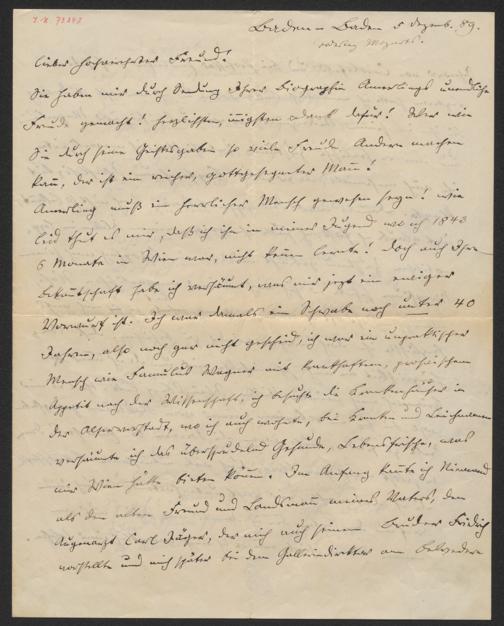 I.N. 73343
Baden-Baden 5 Dezemb. 89.
Todestag Mozarts.
Lieber hochverehrter Freund!
Sie haben mir durch Sendung Ihrer Biographie Amerlings unendliche
Freude gemacht! herzlichsten, innigsten Dank dafür! Wer wie
Sie durch seine Geistesgaben so viele Freude Andern machen
kann, der ist ein reicher, gottgesegneter Mann!
Amerling muß ein herrlicher Mensch gewesen seyn! wie
leid thut es mir, daß ich ihn in meiner Jugend wo ich 1843
6 Monate in Wien war, nicht kennen lernte! Doch auch Ihre
Bekanntschaft habe ich versäumt, was mir jezt ein ewiger
Vorwurf ist. Ich war damals ein Schwabe noch unter 40
Jahren, also noch gar nicht gescheid, ich war ein unpraktischer
Mensch wie Famulus Wagner mit krankhaftem, prosaischem
Appetit nach der Wissenschaft, ich besuchte die Krankenhäuser in
der Alservorstadt, wo ich auch wohnte, bei Kranken und Leichnamen
versäumte ich das übersprudelnd Gesunde, Lebensfrische, was
mir Wien hätte bieten können. Im Anfang kannte ich Niemand
als den alten Freund und Landsmann meines Vaters, den
Augenarzt Carl Jäger, der mich auch seinem Bruder Fridrich
vorstellte und mich später bei dem Galleriedirektor am Belvedere